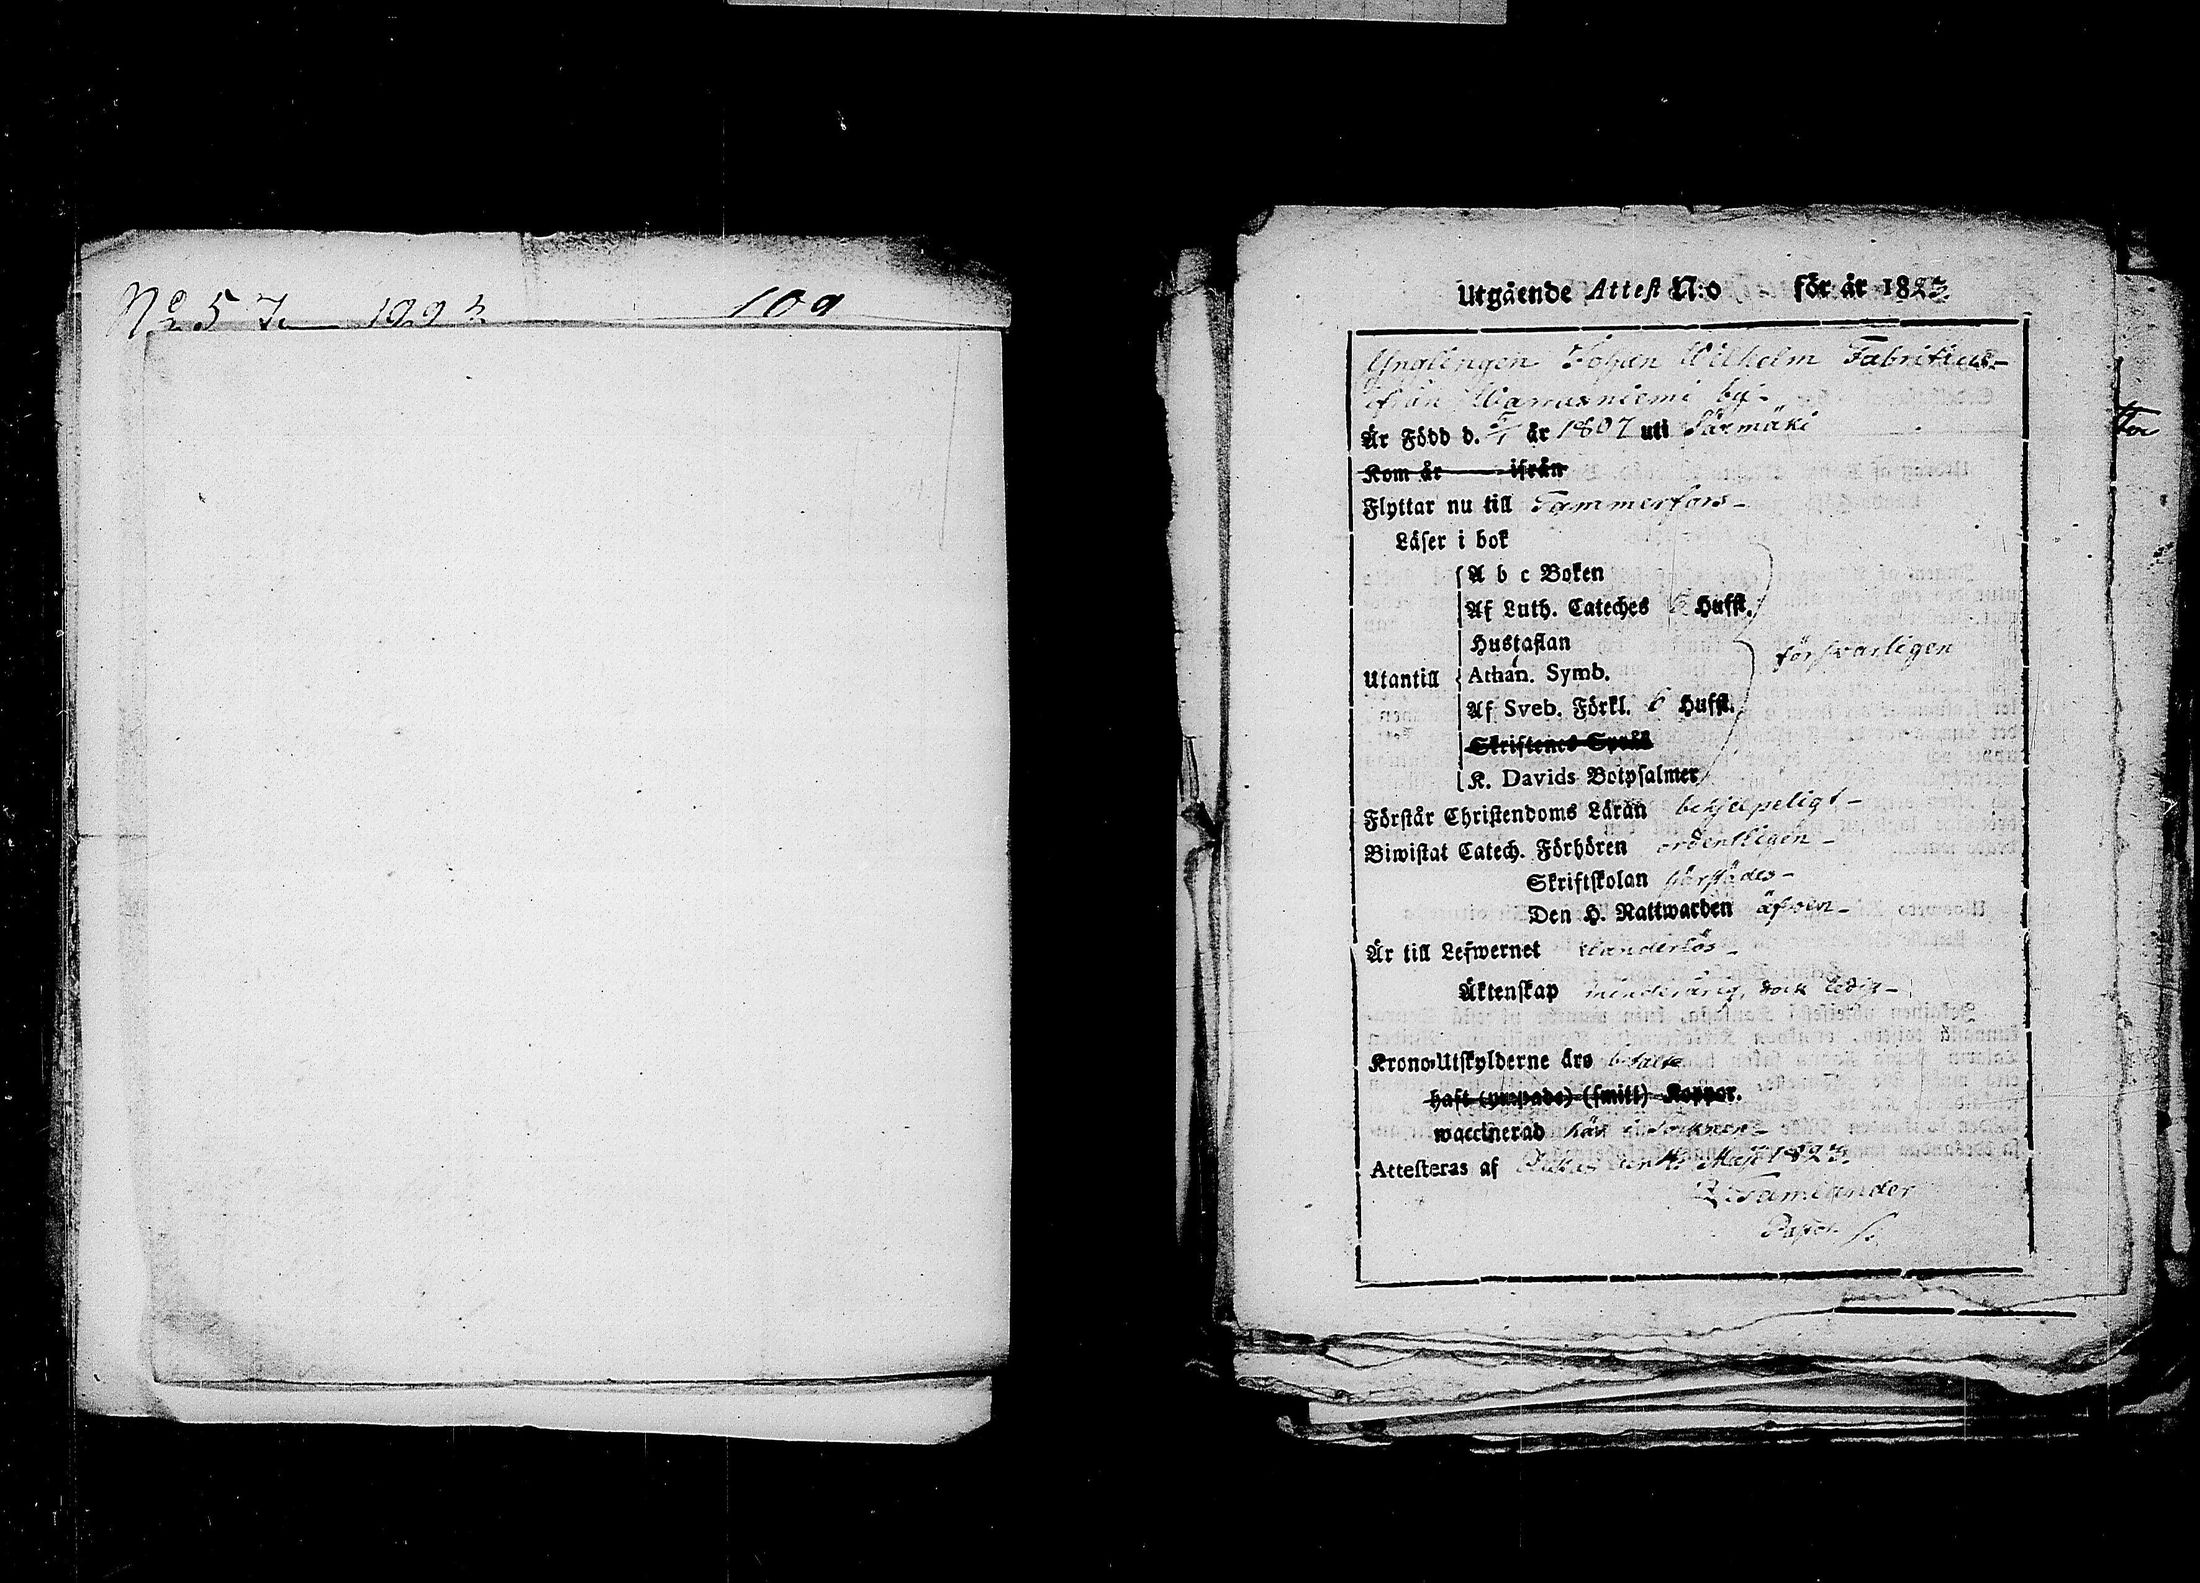 No 57 1823 109
Utgående Attest N:o för år 1823.
Ynglingen Johan Wilhelm Fabritius
ifrån Warrasniemi by
Är Född d. 5/1 år 1807 uti Särmäki
Kom år ifrån
Flyttar nu till Tammerfors
Läser i bok
A b c Boken
Af Luth. Cateches 6 Hufst.
Hustaflan
försvarligen
Utantill Athan. Symb.
Af Sveb. Förkl. 6 Hufst.
Skriftenes Språk
K. Davids Botpsalmer
Förstår Christendoms Läran behjelpeligt
Biwistat Catech. Förhören ordentligen
Skriftskolan härstädes
Den H. Nattwarden äfven
Är till Lefwernet klanderlös
Äktenskap minderårig, och ledig
Krono-Utskylderne äro betalte
haft (ympade) (smitt) Koppor.
waccinerad här i socknen
Attesteras af den Maji 1823.
Pastor